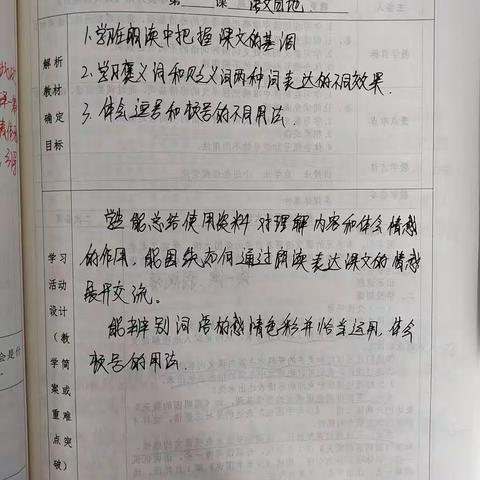 第 课 语文园地.
解析
教材
确定
目标
1.学在朗读中把握课文的基调
2.学习褒义词和贬义词两种词表达的不同效果.
3.体会逗号和顿号的不同用法
学习
活动
设计
（教
学简
案或
重难
点突
破）
能总结使用资料对理解内容和体会情感
的作用.能围绕如何通过朗读表达课文的情感
展开交流.
能辨别词语的感情色彩并恰当运用.体会
顿号的用法.